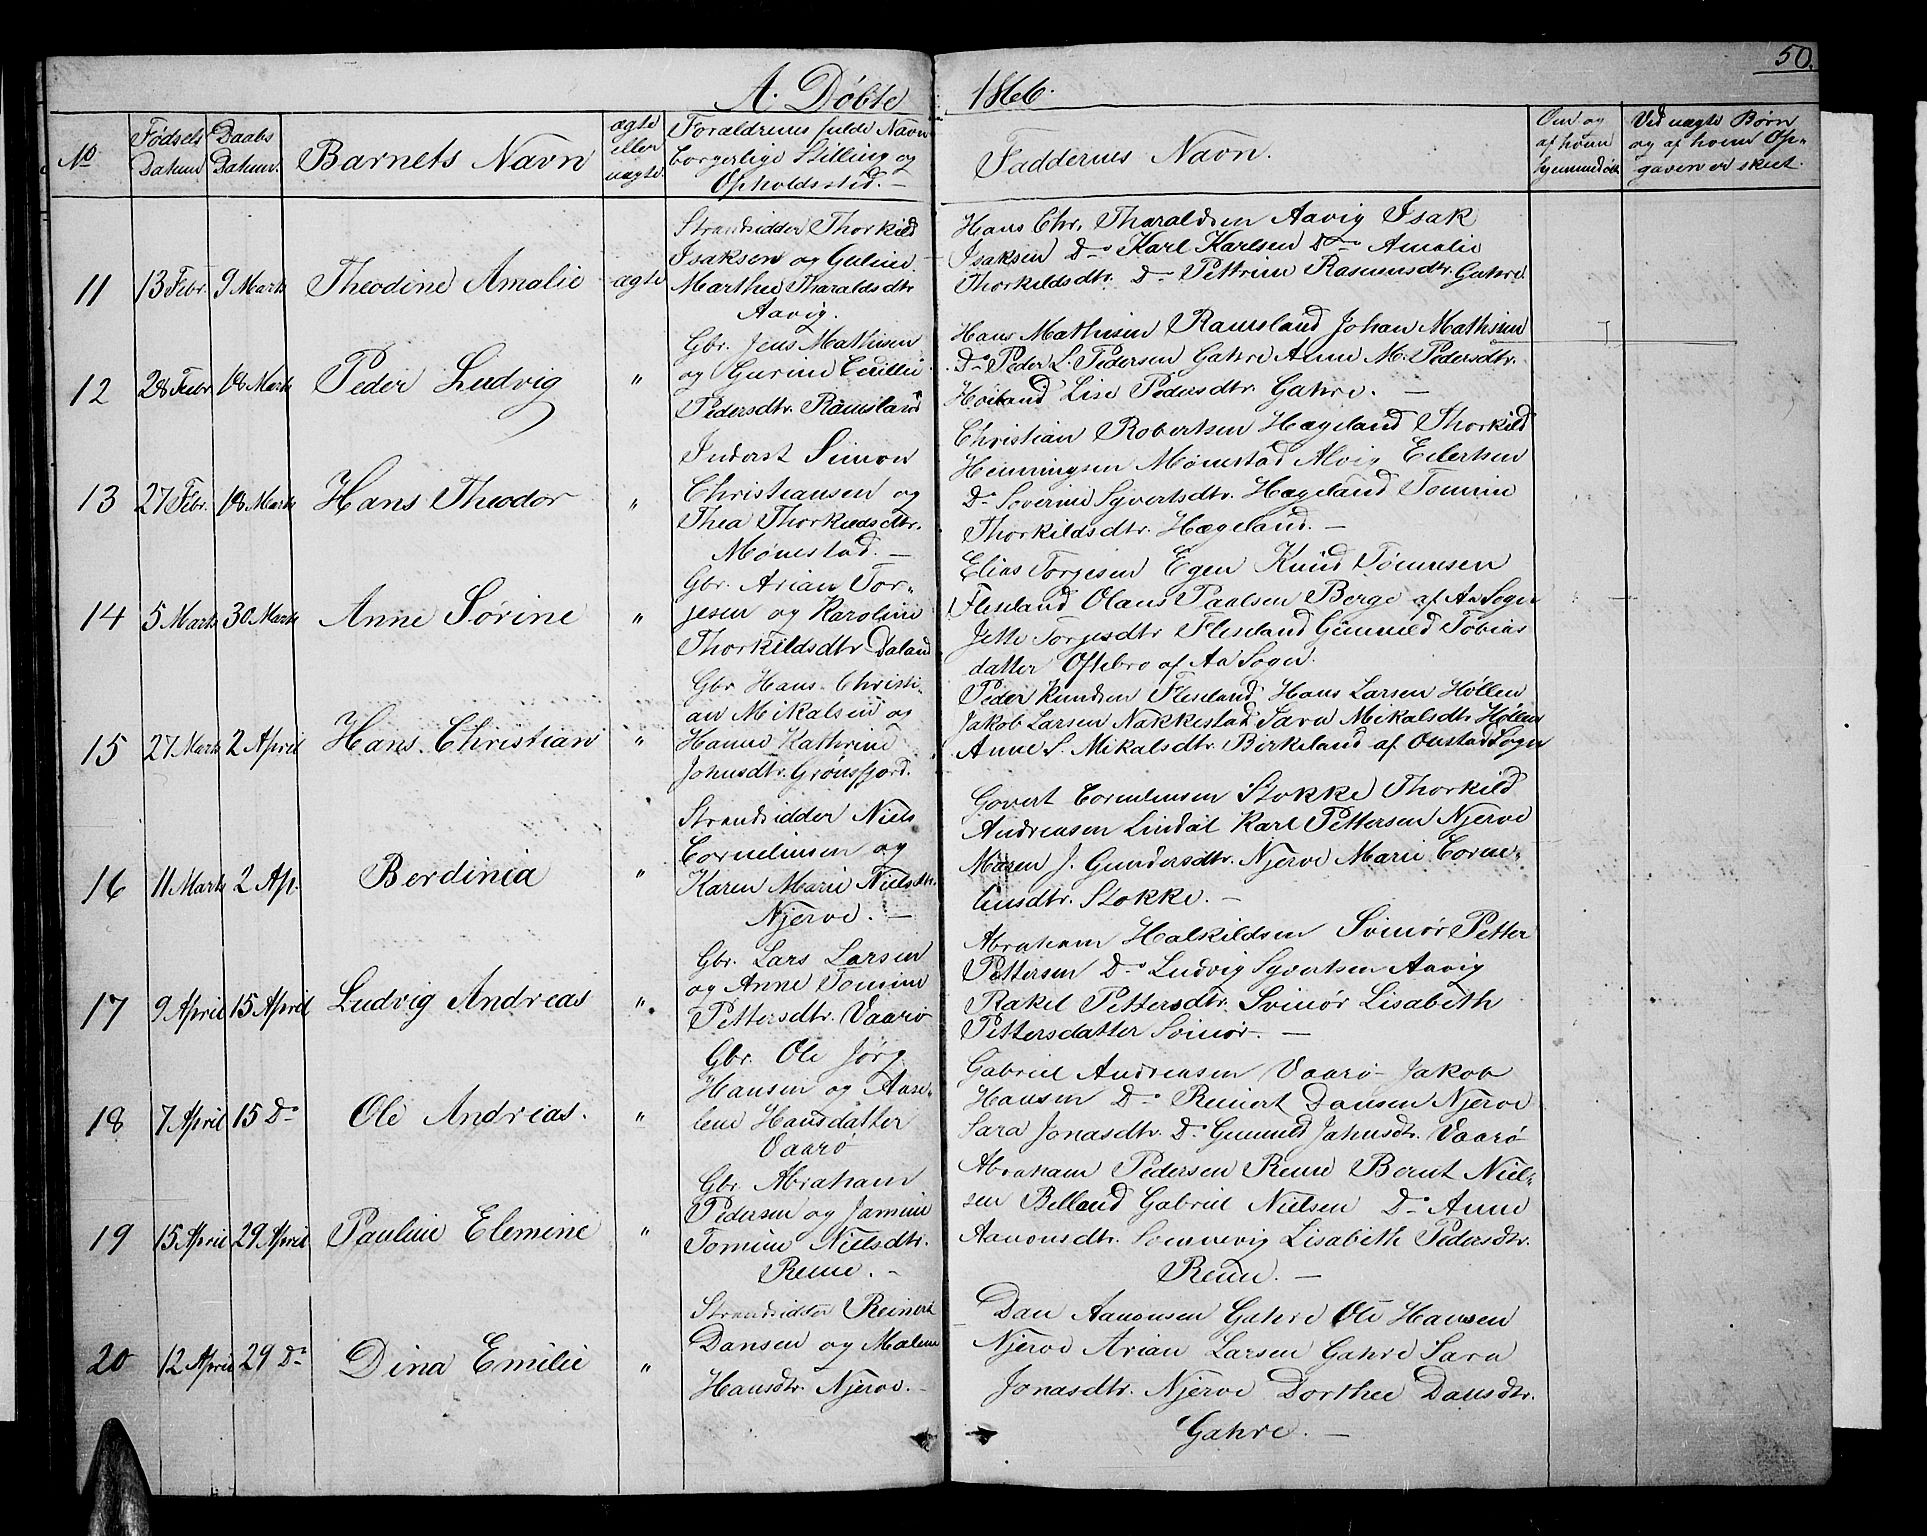 50.
A. Døbte 1866.
No
Fødsels Datum
Daabs Datum.
Barnets Navn
ægte eller uægte.
Forældrenes fulde Navn
borgerlige Stilling og
Opholdssted. —
Faddernes Navn.
Om og
af hvem
hjemmedøbt
Ved uægte Børn
og af hvem Op-
gaven er skeet.
11 13 Febr. 9 Marts Theodine Amalie ægte
Strandsidder Thorkild
Isaksen og Guline
Marthea Tharaldsdtr
Aavig.
Hans Chr. Tharaldsen Aavig Isak
Isaksen Do Karl Karlsen Do Amalie
Thorkildsdtr. Do Pettrine Rasmusdtr. Gahre
12 28 Febr 18 Marts Peder Ludvig "
Gbr. Jens Mathisen
og Gurine Cecillie
Pedersdtr. Ramsland
Hans Mathisen Ramsland Johan Mathisen
Do Peder L. Pedersen Gahre Anne M. Pedersdtr.
Høiland Lise Pedersdtr. Gahre. —
13 27 Febr. 18 Marts Hans Theodor "
Inderst Simon
Christiansen og
Thea Thorkildsdtr.
Mønestad. —
Christian Robertsen Hægeland Thorkild
Henningsen Mønestad Alvig Eilertsen
Do Soverine Syvertsdtr. Hægeland Tomine
Thorkildsdtr. Hægeland. —
14 5 Marts 30 Marts Anne Sørine "
Gbr. Arian Tor-
jesen og Karoline
Thorkildsdtr Daland
Elias Torjesen Egen Knud Tønnesen
Flesland Olaus Paalsen Berge af Aa Sogn
Jette Torjesdtr Flesland Gunnild Tobias
datter Oftebro af Aa Sogn.
15 27 Marts 2 April Hans Christian "
Gbr Hans Christi-
an Mikalsen og
Hanne Kathrine
Johnsdtr. Grønsfjord.
Peder Knudsen Flesland Hans Larsen Høllen
Jakob Larsen Nakkestad Sara Mikalsdtr Høllen
Anne S. Mikalsdtr. Birkeland af Oustad Sogn
16 11 Marts 2 Ap. Berdinia "
Strandsidder Niels
Corneliusen og
Karen Marie Nielsdtr.
Njerve. —
Govert Corneliusen Stokke Thorkild
Andreasen Lindal Karl Pettersen Njerve
Maren J. Gundersdtr. Njerve Marie Corne-
liusdtr. Stokke. —
17 9 April 15 April Ludvig Andreas "
Gbr. Lars Larsen
og Anne Tomine
Pettersdtr. Vaarø
Abraham Halskildsen Svinør Petter
Pettersen Do Ludvig Syvertsen Aavig
Rakel Pettersdtr. Svinør Lisabeth
Pettersdatter Svinør. —
18 7 April 15 Do Ole Andreas. "
Gbr. Ole Jørg.
Hansen og Aase-
lene Hansdatter
Vaarø
Gabriel Andreasen Vaarø Jakob
Hansen Do Reinert Dansen Njerve
Sara Jonasdtr. Do Gunnild Jahnsdtr. Vaarø
19 15 April 29 April Pauline Elemine "
Gbr. Abraham
Pedersen og Jamine
Tomine Nielsdtr.
Reme. —
Abraham Pedersen Reme Bernt Niel-
sen Belland Gabriel Nielsen Do Anne
Aanonsdtr. Somnevig Lisabeth Pedersdtr.
Reme. —
20 12 April 29 Do Dina Emilie "
Strandsidder Reinert
Dansen og Malene
Hansdtr. Njerve. —
Dan Aanonsen Gahre Ole Hansen
Njerve Arian Larsen Gahre Sara
Jonasdtr. Njerve Dorthea Dansdtr.
Gahre. —